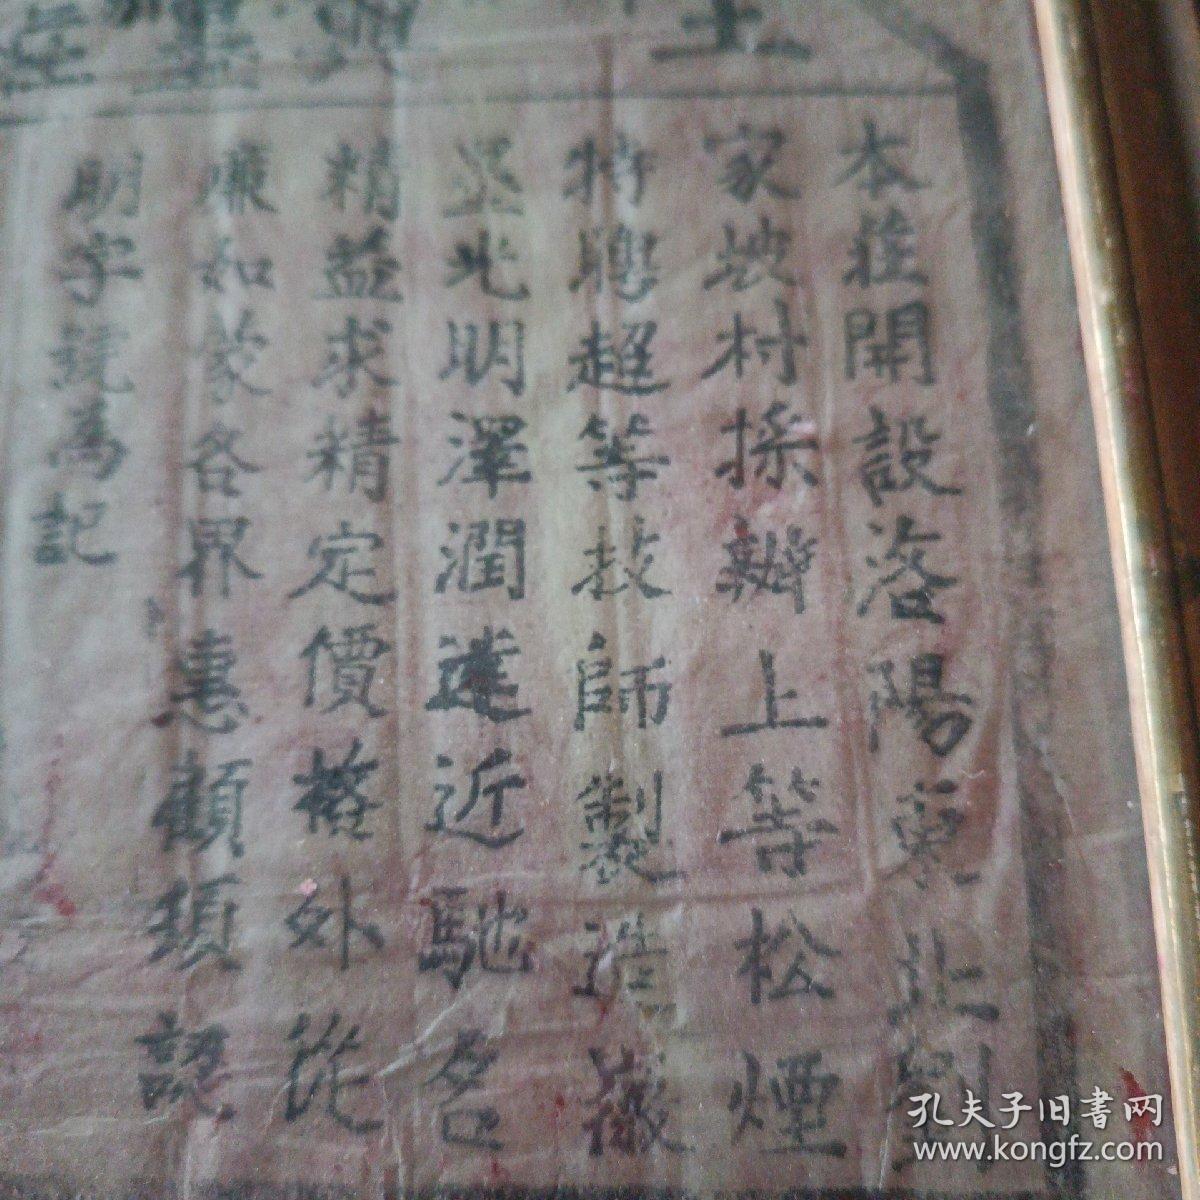 本莊開設洛陽東北劉
家坡村採辦上等松煙
特聘超等技師製造徽
墨光明澤潤遠近馳名
精益求精定價格外從
廉如蒙各界惠顧須認
明字號為記
孔夫子旧书网
www.kongfz.com